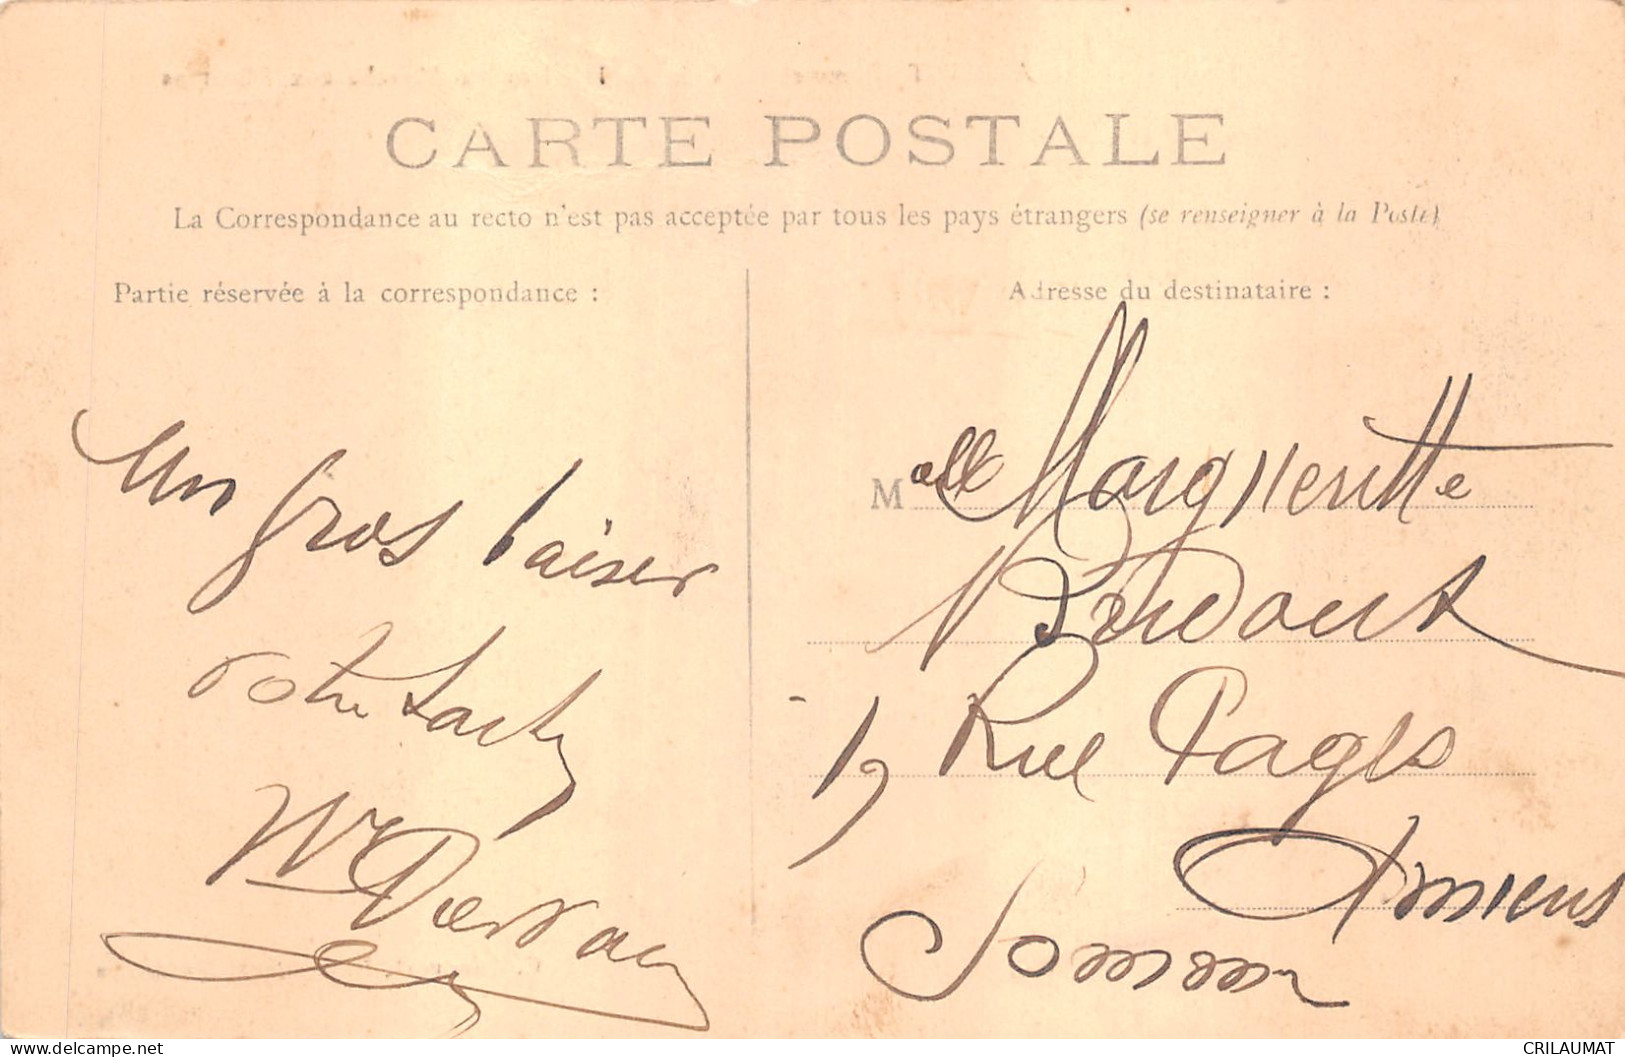 CARTE POSTALE
La Correspondance au recto n'est pas acceptée par tous les pays étrangers (se renseigner à la Poste)
Partie réservée à la correspondance :
Adresse du destinataire :
Un gros baiser
votre
M elle Marguerite
19 Rue Pagès
Amiens
Somme
CRILAUMAT